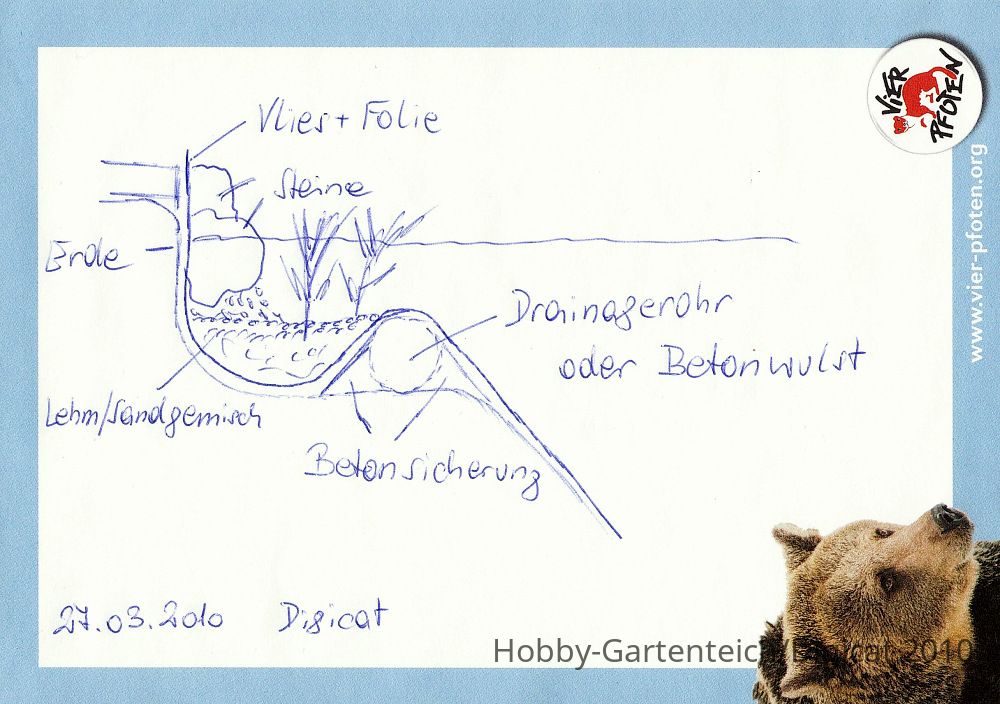 VIER
PFOTEN
www.vier-pfoten.org
Vlies + Folie
Steine
Erde
Drainagerohr
oder Betonwulst
Lehm/Sandgemisch
Betonsicherung
27.03.2010 Digicat
Hobby-Gartenteich/Digicat 2010